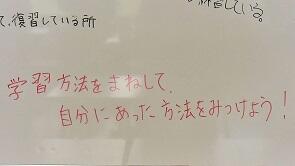 て、復習している所
している。
学習方法をまねして、
自分にあった方法をみつけよう!